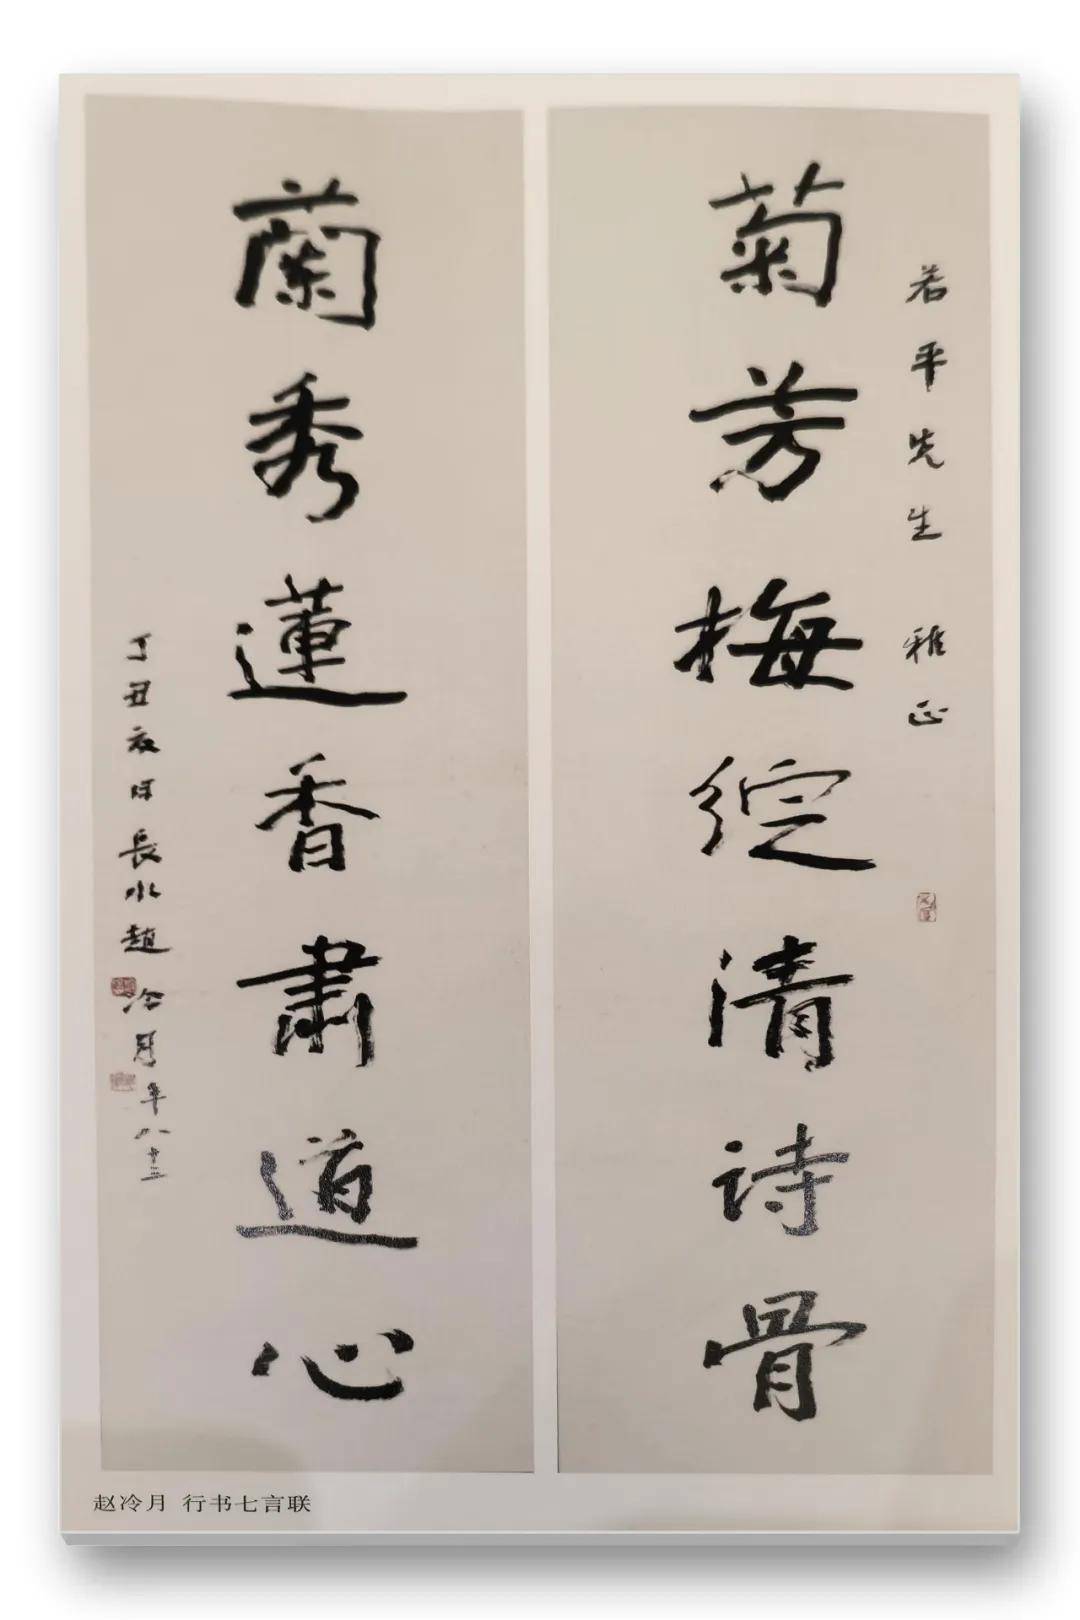 若平先生 雅正
菊芳梅绽清诗骨
蘭秀蓮香肅道心
丁丑夜时長水趙冷月年八十三
赵冷月 行书七言联